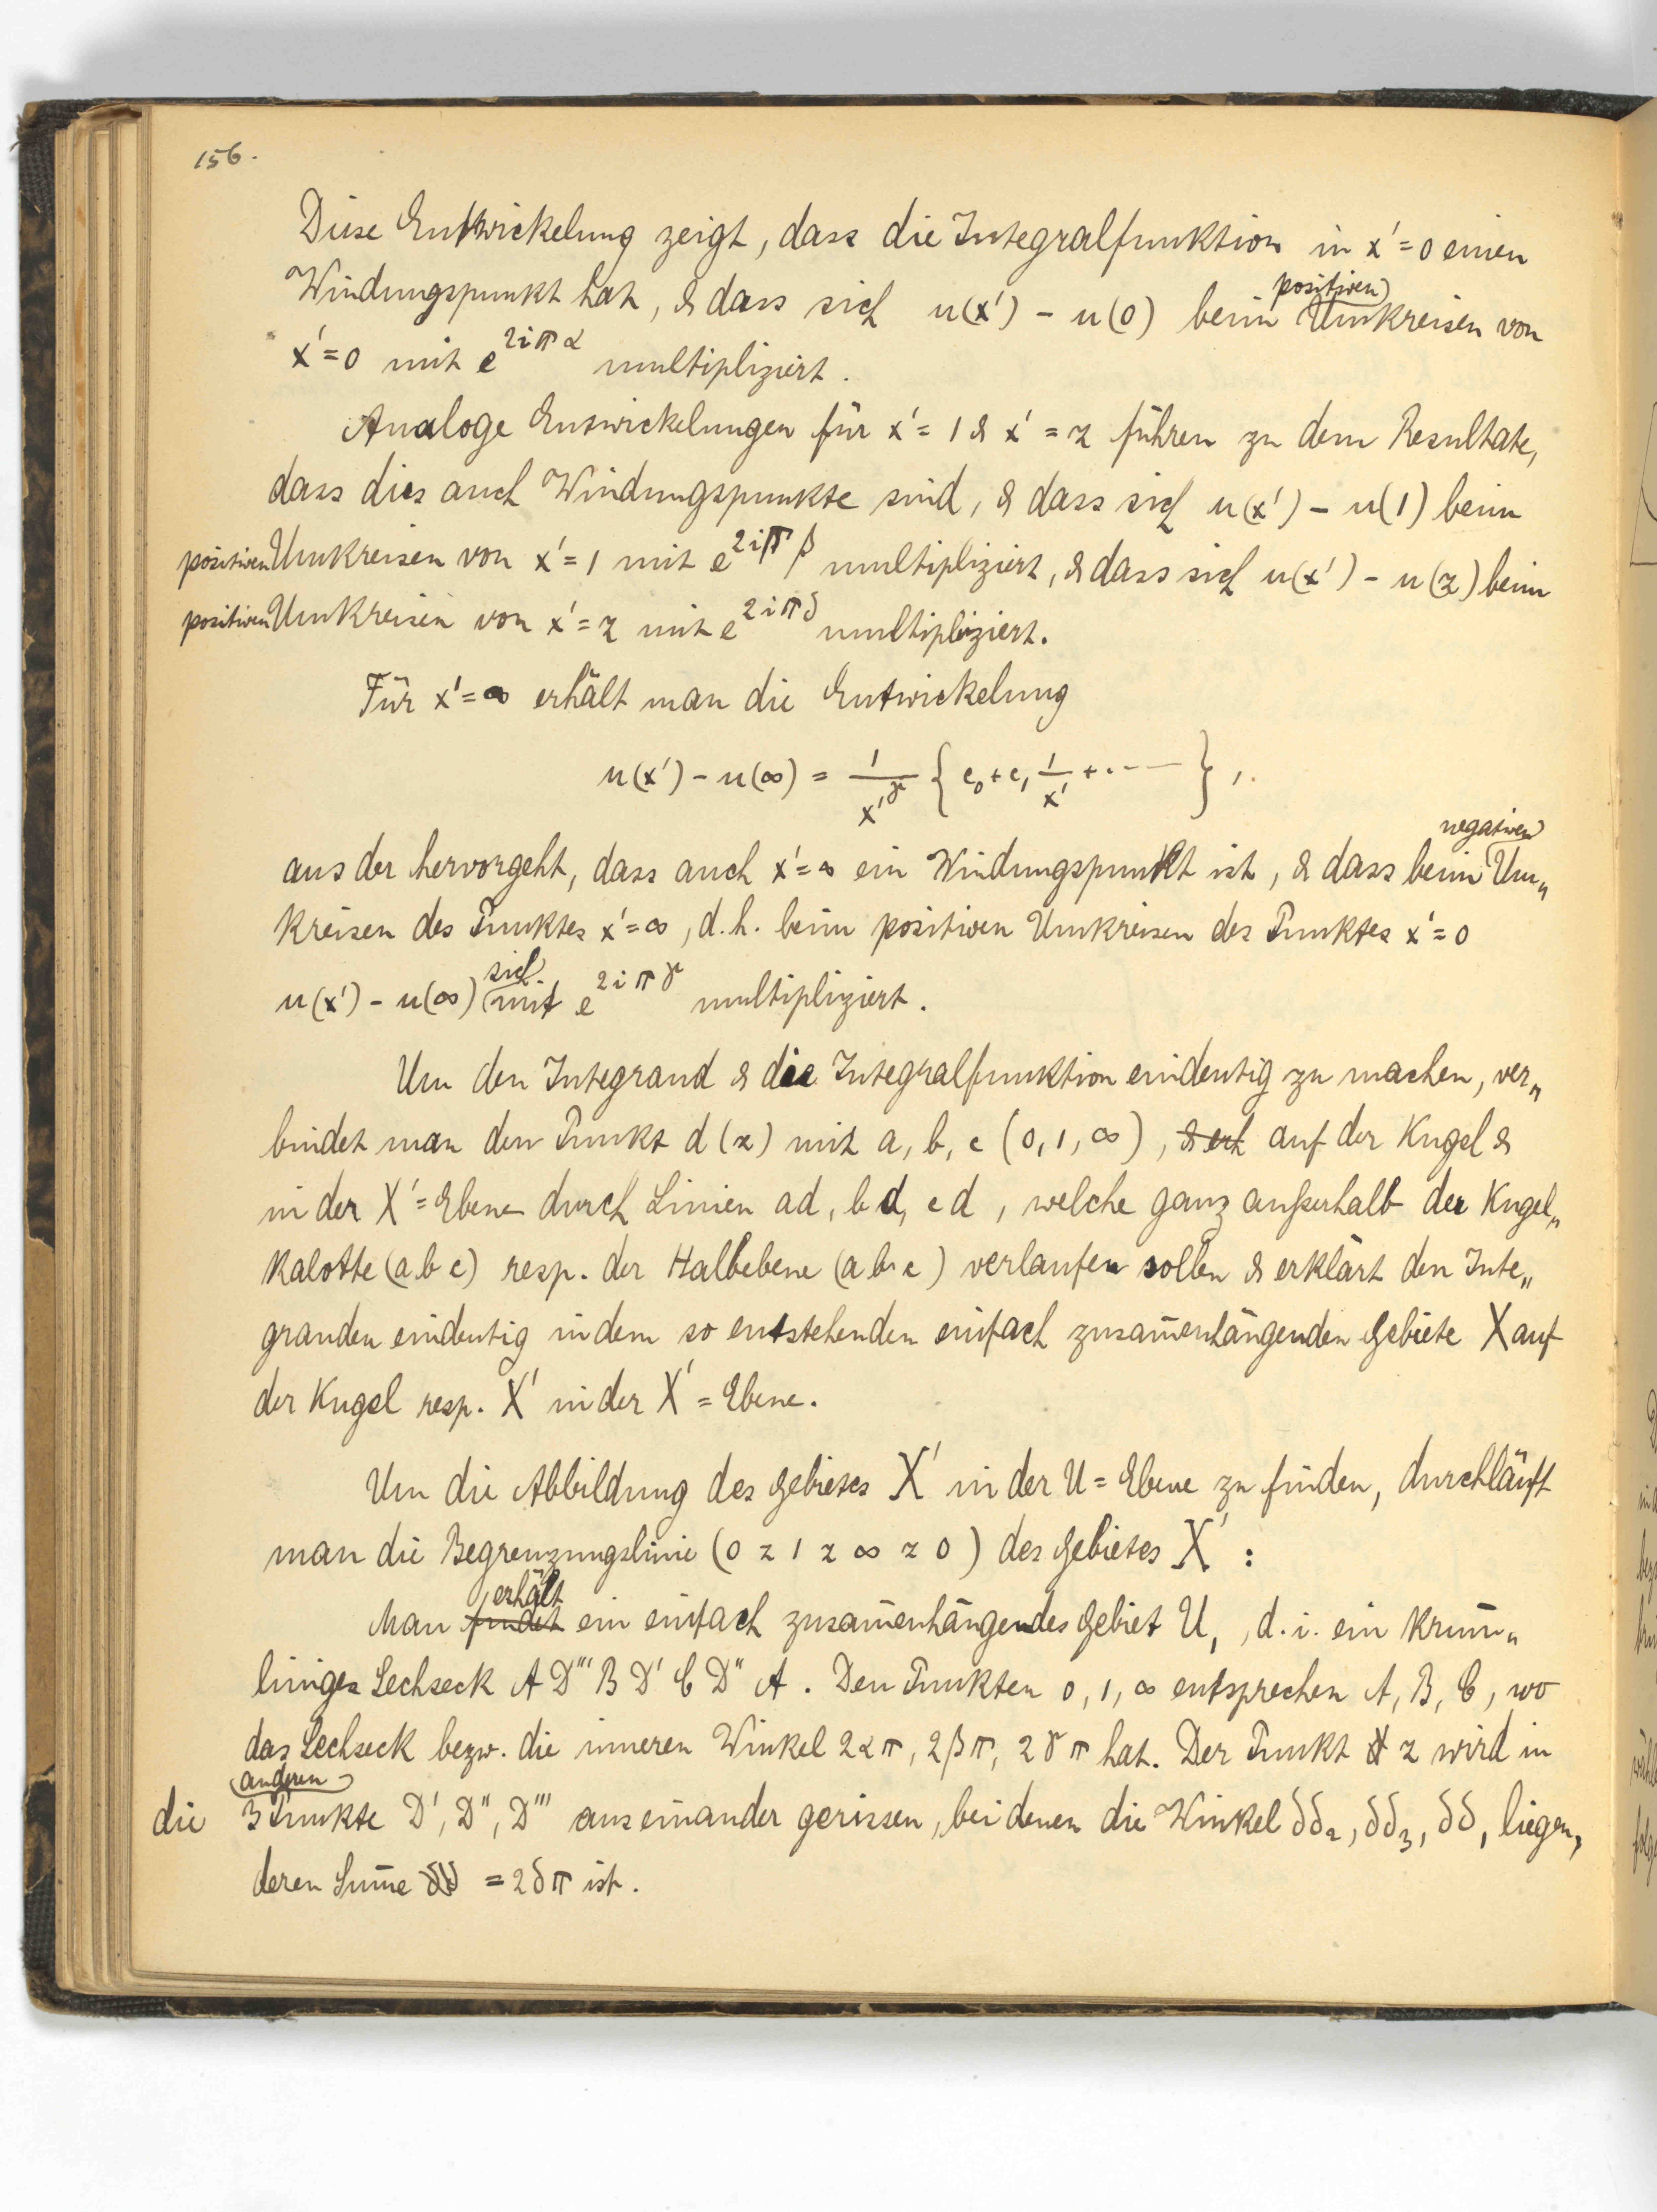 156.
Diese Entwickelung zeigt, dass die Integralfunktion in x' = 0 einen
Windungspunkt hat, & dass sich u(x') - u(0) beim positiven Umkreisen von
x' = 0 mit e^{2iπα} multipliziert.
Analoge Entwickelungen für x' = 1 & x' = z führen zu dem Resultate,
dass dies auch Windungspunkte sind, & dass sich u(x') - u(1) beim
positiven Umkreisen von x' = 1 mit e^{2iπβ} multipliziert, & dass sich u(x') - u(z) beim
positiven Umkreisen von x' = z mit e^{2iπδ} multipliziert.
Für x' = ∞ erhält man die Entwickelung
u(x') - u(∞) = 1/x'^γ { c₀ + c₁ 1/x' + ····· },
aus der hervorgeht, dass auch x' = ∞ ein Windungspunkt ist, & dass beim negativen Um„
kreisen des Punktes x' = ∞, d.h. beim positiven Umkreisen des Punktes x' = 0
u(x') - u(∞) sich mit e^{2iπγ} multipliziert.
Um den Integrand & die Integralfunktion eindeutig zu machen, ver„
bindet man den Punkt d (z) mit a, b, c (0, 1, ∞), auf der Kugel &
in der X' = Ebene durch Linien ad, bd, cd, welche ganz außerhalb der Kugel„
kalotte (a b c) resp. der Halbebene (a b c) verlaufen sollen & erklärt den Inte„
granden eindeutig in dem so entstehenden einfach zusam̄enhängenden Gebiete X auf
der Kugel resp. X' in der X' = Ebene.
Um die Abbildung des Gebietes X' in der U = Ebene zu finden, durchläuft
man die Begrenzungslinie (0 z 1 z ∞ z 0) des Gebietes X' :
Man findet erhält ein einfach zusam̄enhängendes Gebiet U, , d. i. ein krum̄„
liniges Sechseck A D''' B D' C D'' A. Den Punkten 0, 1, ∞ entsprechen A, B, C, wo
das Sechseck bezw. die inneren Winkel 2απ, 2βπ, 2γπ hat. Der Punkt z wird in
die 3 anderen Punkte D', D'', D''' auseinander gerissen, bei denen die Winkel δδ₂, δδ₃, δδ, liegen,
deren Sum̄e = 2δπ ist.